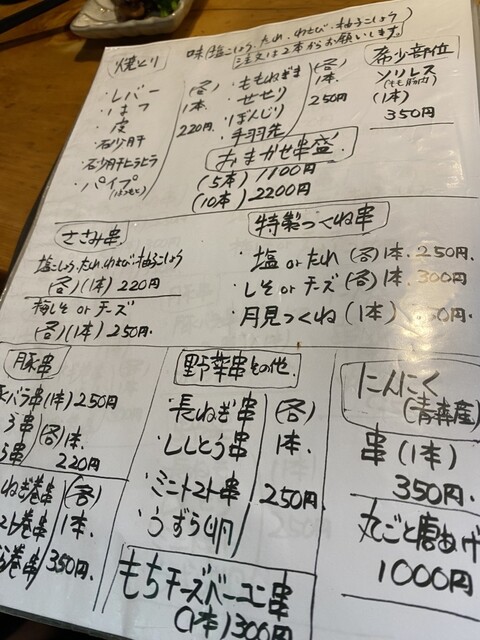 焼とり
味(塩こしょう、たれ、わさび、柚子こしょう)
ご注文は2本からお願いします。
・レバー
・はつ
・皮
・砂肝
・砂肝ヒラヒラ
・パイプ
(各)
1本
220円
・ももねぎま
・せせり
・ぼんじり
・手羽先
(各)
1本.
250円
希少部位
ソリレス
(1本)
350円
おまかせ串盛
(5本) 1100円
(10本) 2200円
ささみ串.
塩こしょう、たれ、わさび、柚子こしょう
(各)(1本) 220円
梅しそ or チーズ
(各)(1本) 250円.
特製つくね串
・塩 or たれ (各)1本. 250円.
・しそ or チーズ (各)1本. 300円
・月見つくね (1本) 350円.
豚串
バラ串(1本) 250円
串
串
(各)1本.
220円
ねぎ巻串
巻串
巻串
(各)
1本.
350円.
野菜串その他.
・長ねぎ串
・ししとう串
・ミニトマト串
・うずら卵
(各)
1本.
250円
もちチーズベーコン串
(1本)300円
にんにく
(青森産)
串(1本)
350円.
丸ごと唐あげ
1000円